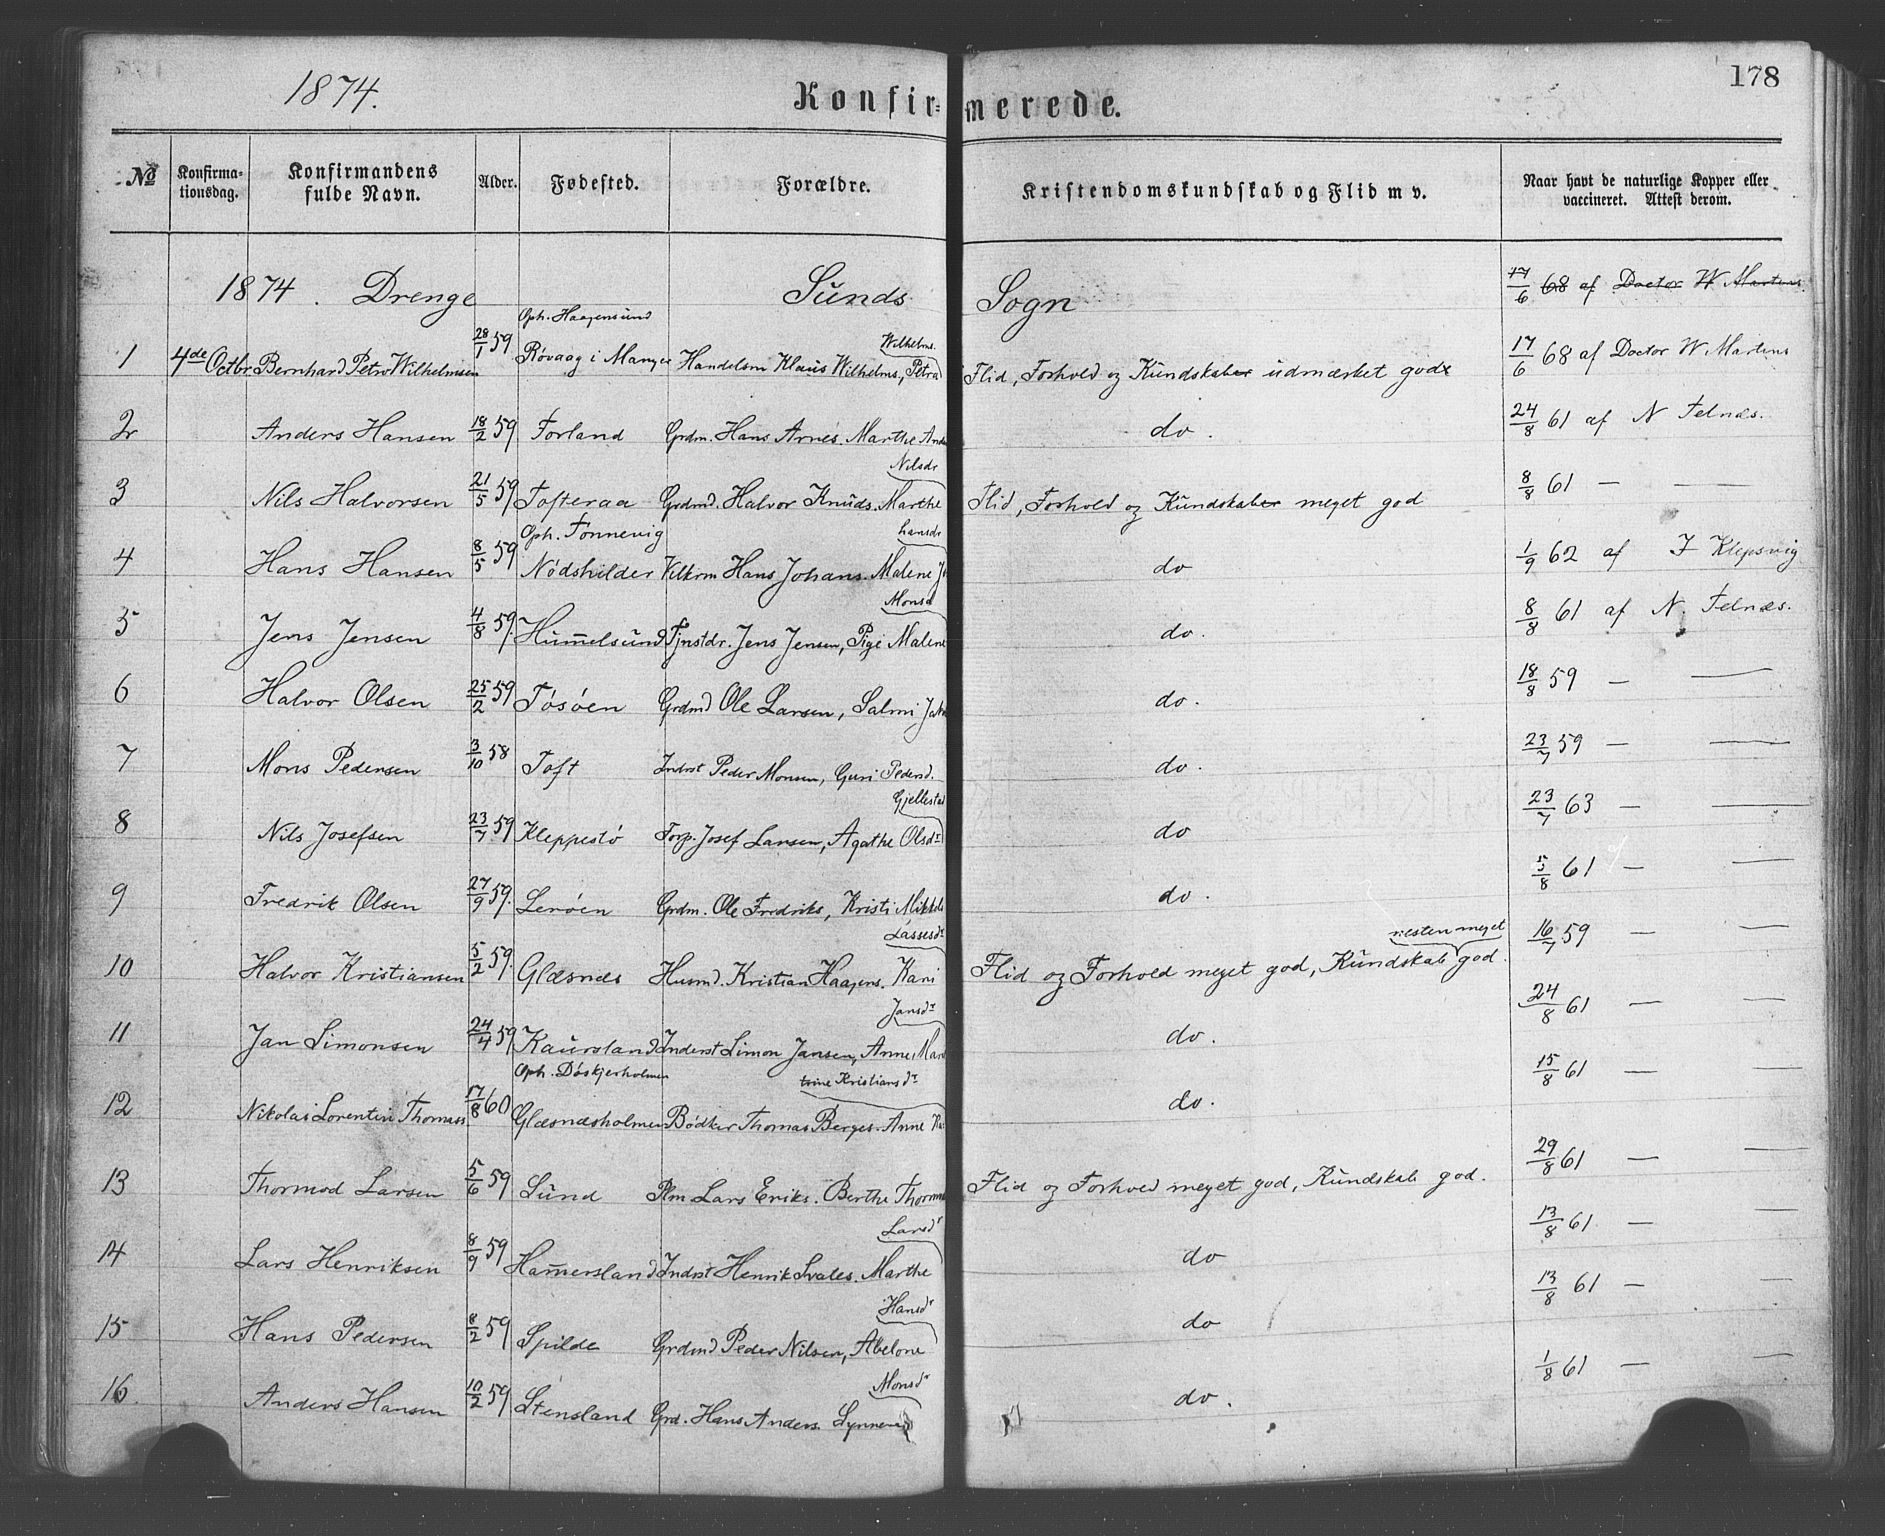 1874. Konfir= merede. 178
No Konfirma-tionsdag. Konfirmandens fulde Navn. Alder. Fødested. Forældre. Kristendomskundskab og Flid m v. Naar havt de naturlige Kopper eller vaccineret. Attest derom.
1874. Drenge Sunds Sogn 17/6 68 af Doctor W Martens
Oph. Haagensund Wilhelms.
1 4de Octbr. Bernhard Petro Wilhelmsen 28/1 59 Røvaag i Manger Handelsm Klaus Wilhelms., Petra Flid, Forhold og Kundskaber udmærket god 17/6 68 af Doctor W Martens
2 Anders Hansen 18/2 59 Forland Grdm. Hans Arnes. Marthe And do. 24/8 61 af N Telnæs.
Nilsdr
3 Nils Halvorsen 21/5 59 Tofteraa Grdmd. Halvor Knuds. Marthe Flid, Forhold og Kundskaber meget god 8/8 61 — —
Oph. Tønnevig hansdr
4 Hans Hansen 8/5 59 Nødskilder Hans Johans. Malene Jo do 1/9 62 af J Klepsvig
Monsd
5 Jens Jensen 4/8 59. Hummelsund Tjnstdr. Jens Jensen, Pige Malene do. 8/8 61 af N. Telnæs.
6 Halvor Olsen 25/2 59 Tøsøen Grdmd Ole Larsen, Salmi Jak do. 18/8 59 — —
7 Mons Pedersen 3/10 58 Toft Indrst Peder Monsen, Guri Pedersd. do. 23/7 59 — —
Gjellestad
8 Nils Josefsen 23/7 59 Kleppestø Torp. Josef Larsen, Agathe Olsdr do 23/7 63 — —
9 Fredrik Olsen 27/9 59. Lerøen Grdm. Ole Fredriks, Kristi Mikkels do. 5/8 61 — —
Lassesdr næsten meget
10 Halvor Kristiansen 5/2 59. Glæsnæs Husmd. Kristian Haagens. Kari Flid og Forhold meget god, Kundskab god. 16/7 59 — —
Jansdr
11 Jan Simonsen 24/4 59 Kaursland Inderst Simon Jansen, Anne Mar do. 24/8 61 — —
Oph. Døskjerholmen trine Kristiansdr
12 Nikolai Lorentin Thomass 17/8 60 Glæsnæsholmen Bødker Thomas Berges. Anne Ka do. 15/8 61 — —
13 Thormod Larsen 5/6 59 Sund Plm Lars Eriks. Berthe Thorm Flid og Forhold meget god, Kundskab god. 29/8 61 — —
Larsdr
14 Lars Henriksen 8/9 59 Hammersland Indrst Henrik Svales. Marthe do 13/8 61 — —
Hansdr
15 Hans Pedersen 8/2 59 Spilde Grdmd Peder Nilsen, Abelone do 13/8 61 — —
Monsdr
16. Anders Hansen 10/2 59 Stensland Grd. Hans Anders. Synneve do. 1/8 61 — —